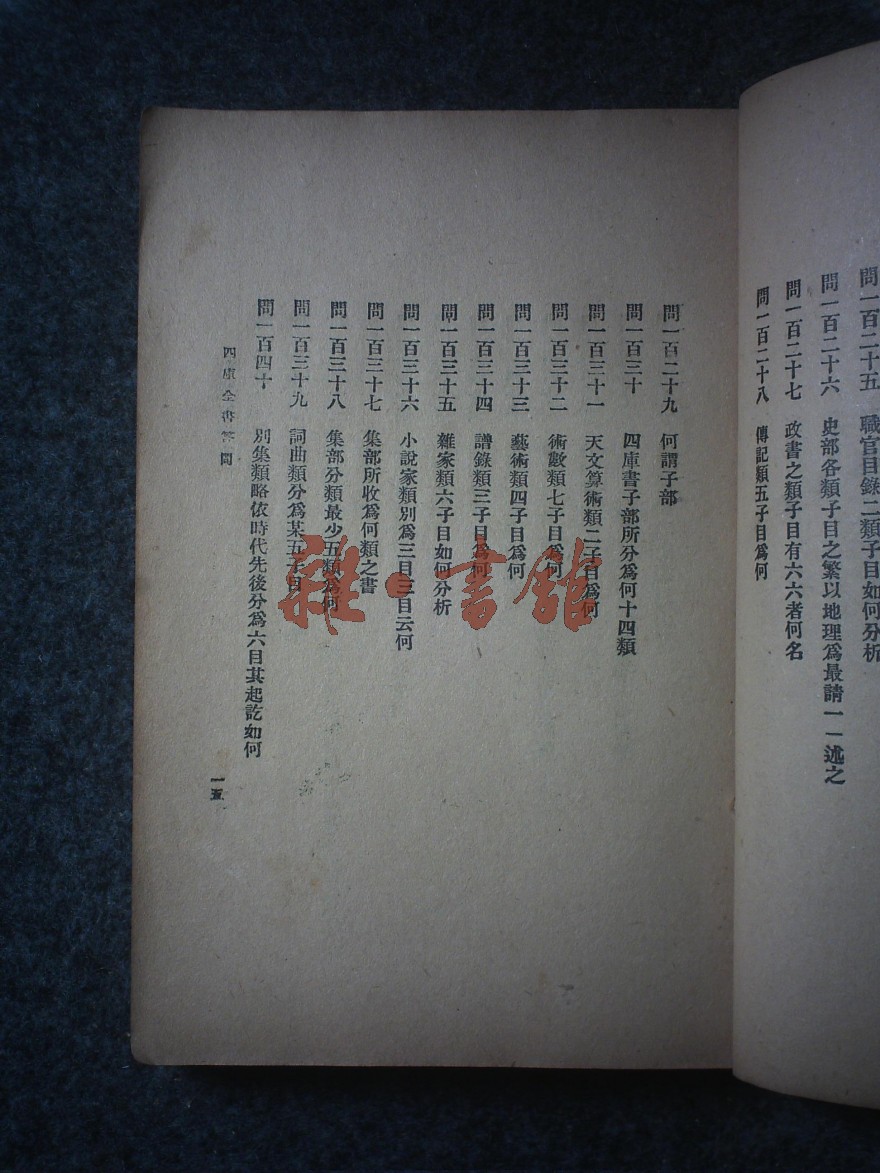 問一百二十五 職官目錄二類子目如何分析
問一百二十六 史部各類子目之繁以地理爲最請一一述之
問一百二十七 政書之類子目有六六者何名
問一百二十八 傳記類五子目爲何
問一百二十九 何謂子部
問一百三十 四庫書子部所分爲何十四類
問一百三十一 天文算術類二子目爲何
問一百三十二 術數類七子目爲何
問一百三十三 藝術類四子目爲何
問一百三十四 譜錄類三子目爲何
問一百三十五 雜家類六子目如何分析
問一百三十六 小說家類別爲三目三目云何
問一百三十七 集部所收爲何類之書
問一百三十八 集部分類最少五類爲何
問一百三十九 詞曲類分爲某五子目
問一百四十 別集類略依時代先後分爲六目其起訖如何
四庫全書答問
一五
雜·書館